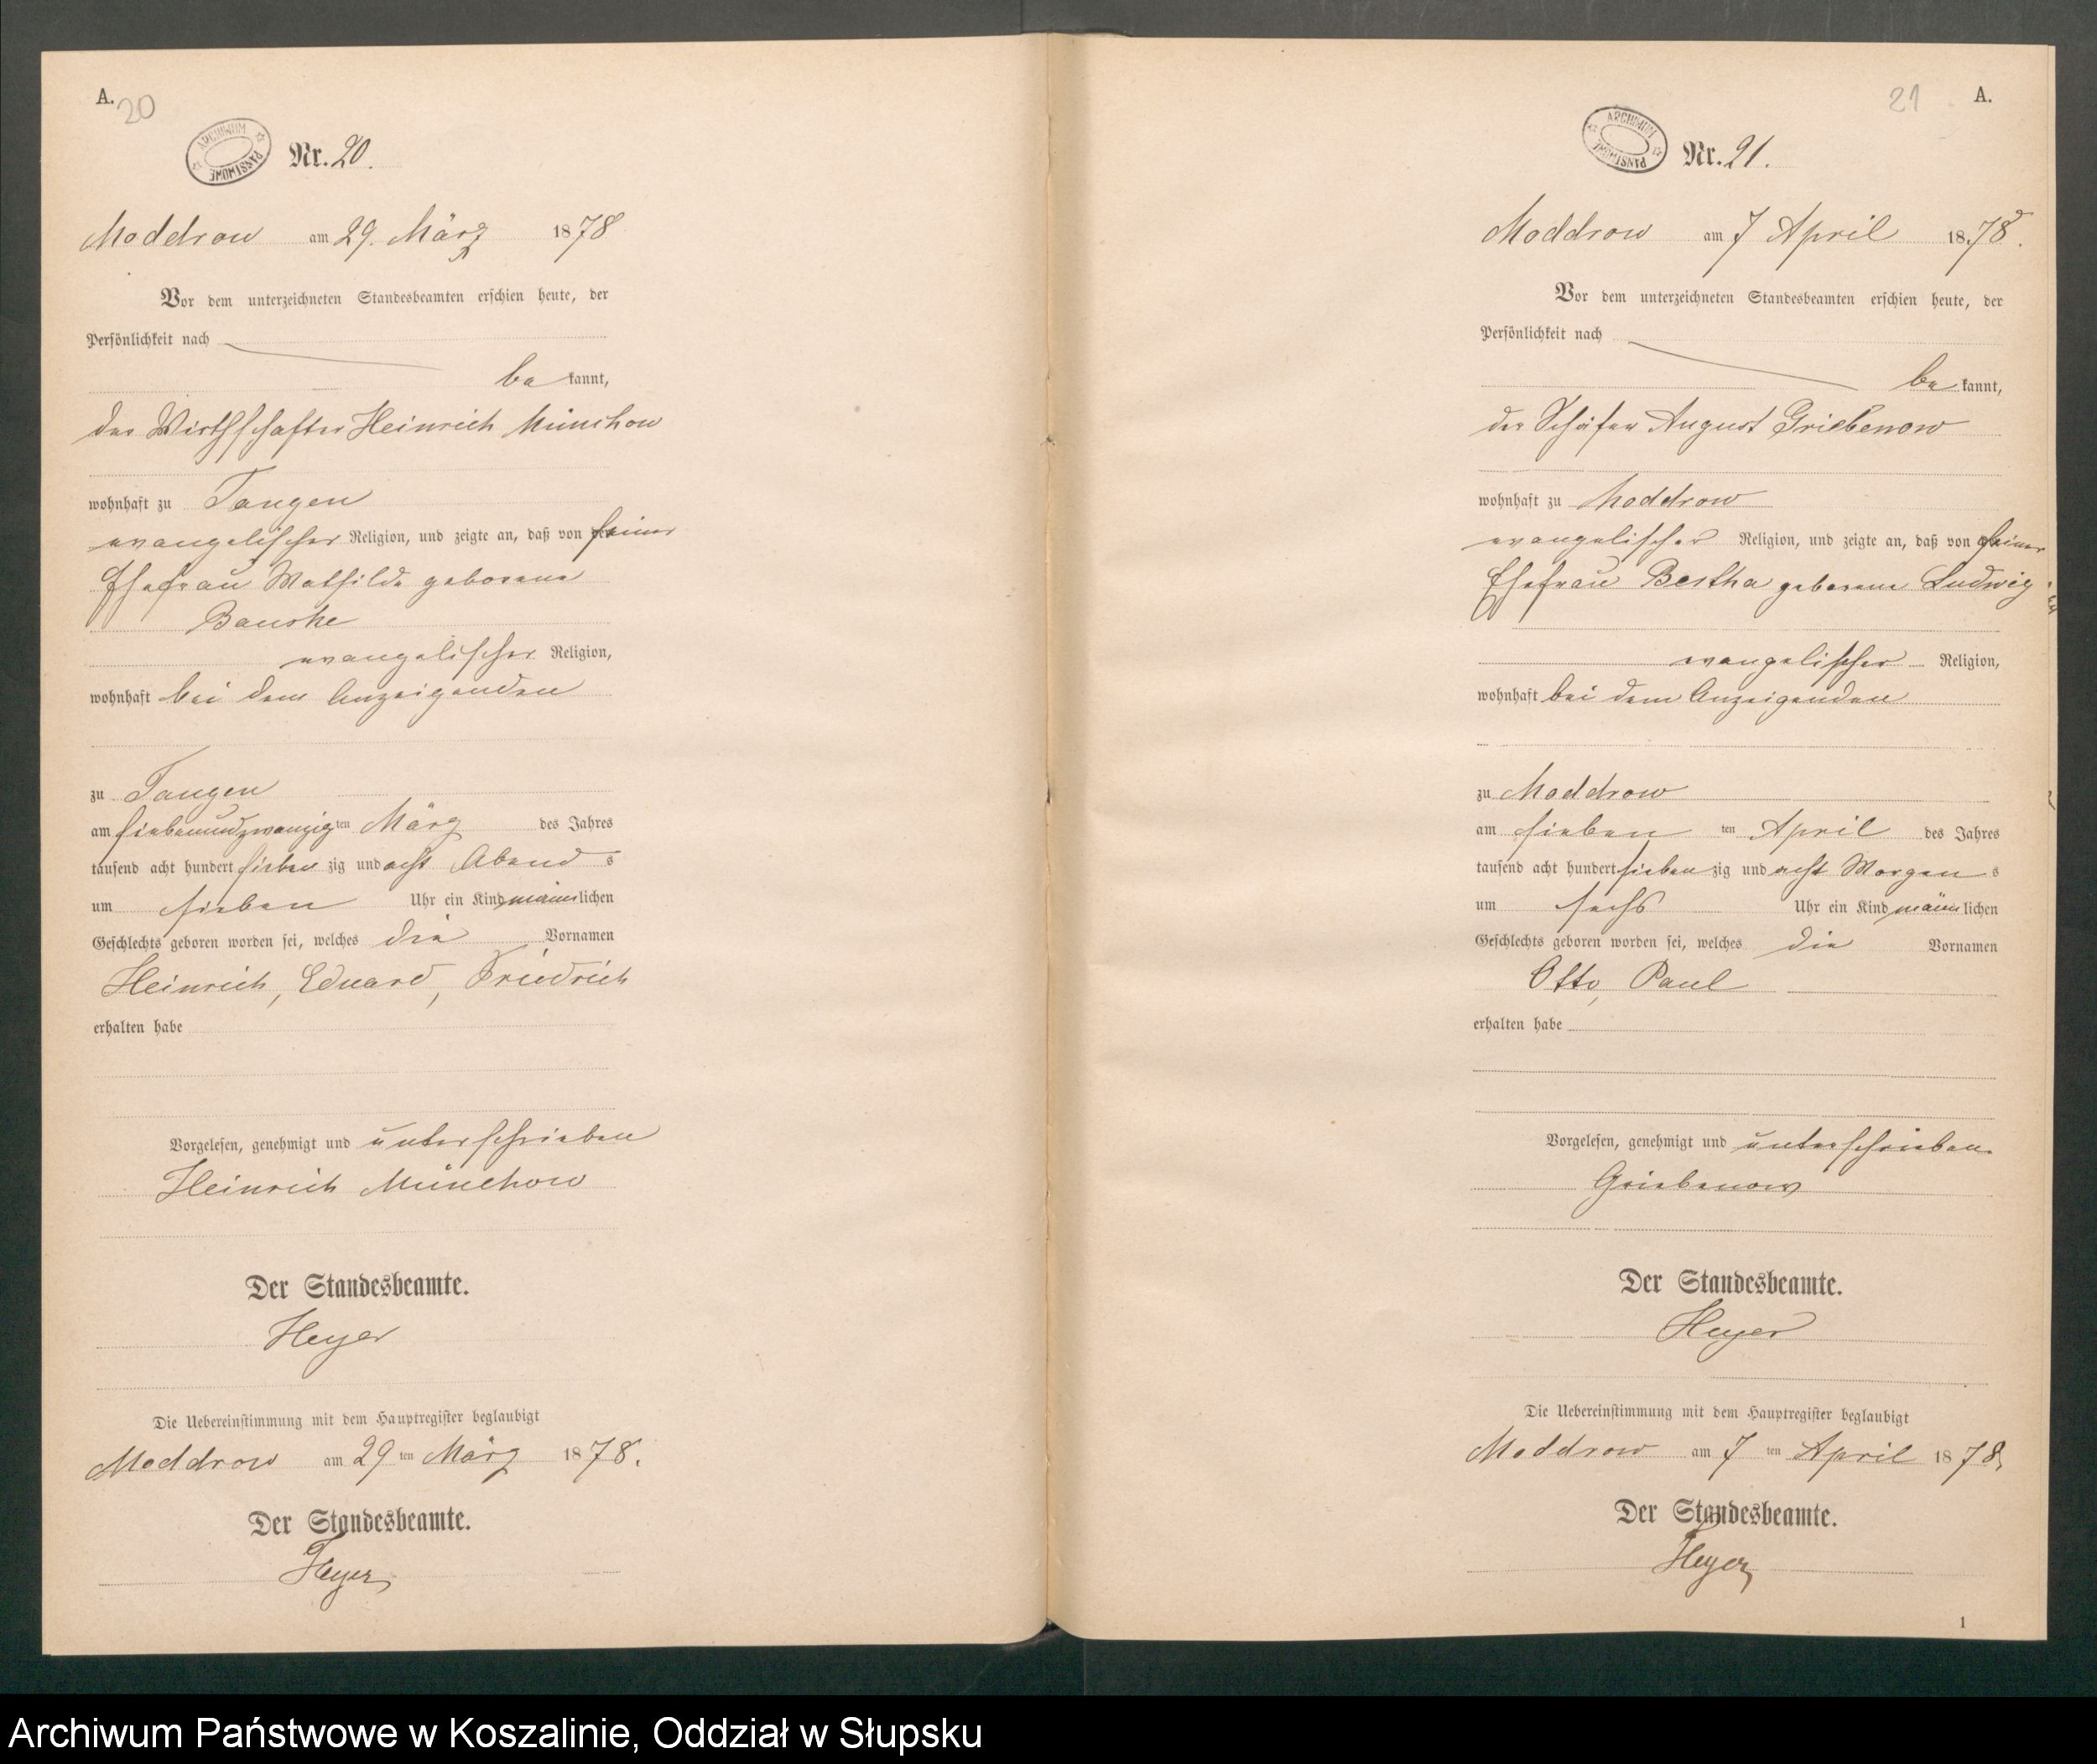 A.
20
ARCHIWUM PAŃSTWOWE
Nr. 20.
Moddrow am 29. März 1878
Vor dem unterzeichneten Standesbeamten erschien heute, der
Persönlichkeit nach
be kannt,
der Wirthschafter Heinrich Münchow
wohnhaft zu Tangen
evangelischer Religion, und zeigte an, daß von seiner
Ehefrau Mathilde geborene
evangelischer Religion,
wohnhaft bei dem Anzeigenden
zu Tangen
am siebenundzwanzig ten März des Jahres
tausend acht hundert sieben zig und acht Abend s
um sieben Uhr ein Kind männlichen
Geschlechts geboren worden sei, welches die Vornamen
Heinrich, Eduard, Friedrich
erhalten habe
Vorgelesen, genehmigt und unterschrieben
Heinrich Münchow
Der Standesbeamte.
Heyer
Die Uebereinstimmung mit dem Hauptregister beglaubigt
Moddrow am 29 ten März 1878.
Der Standesbeamte.
Heyer
21
A.
ARCHIWUM PAŃSTWOWE
Nr. 21.
Moddrow am 7 April 1878.
Vor dem unterzeichneten Standesbeamten erschien heute, der
Persönlichkeit nach
be kannt,
der Schäfer August Griebenow
wohnhaft zu Moddrow
evangelischer Religion, und zeigte an, daß von seiner
Ehefrau Bertha geborene Ludwig
evangelischer Religion,
wohnhaft bei dem Anzeigenden
zu Moddrow
am sieben ten April des Jahres
tausend acht hundert sieben zig und acht Morgen s
um sechs Uhr ein Kind männlichen
Geschlechts geboren worden sei, welches die Vornamen
Otto, Paul
erhalten habe
Vorgelesen, genehmigt und unterschrieben.
Griebenow
Der Standesbeamte.
Heyer
Die Uebereinstimmung mit dem Hauptregister beglaubigt
Moddrow am 7 ten April 1878.
Der Standesbeamte.
Heyer
1
Archiwum Państwowe w Koszalinie, Oddział w Słupsku